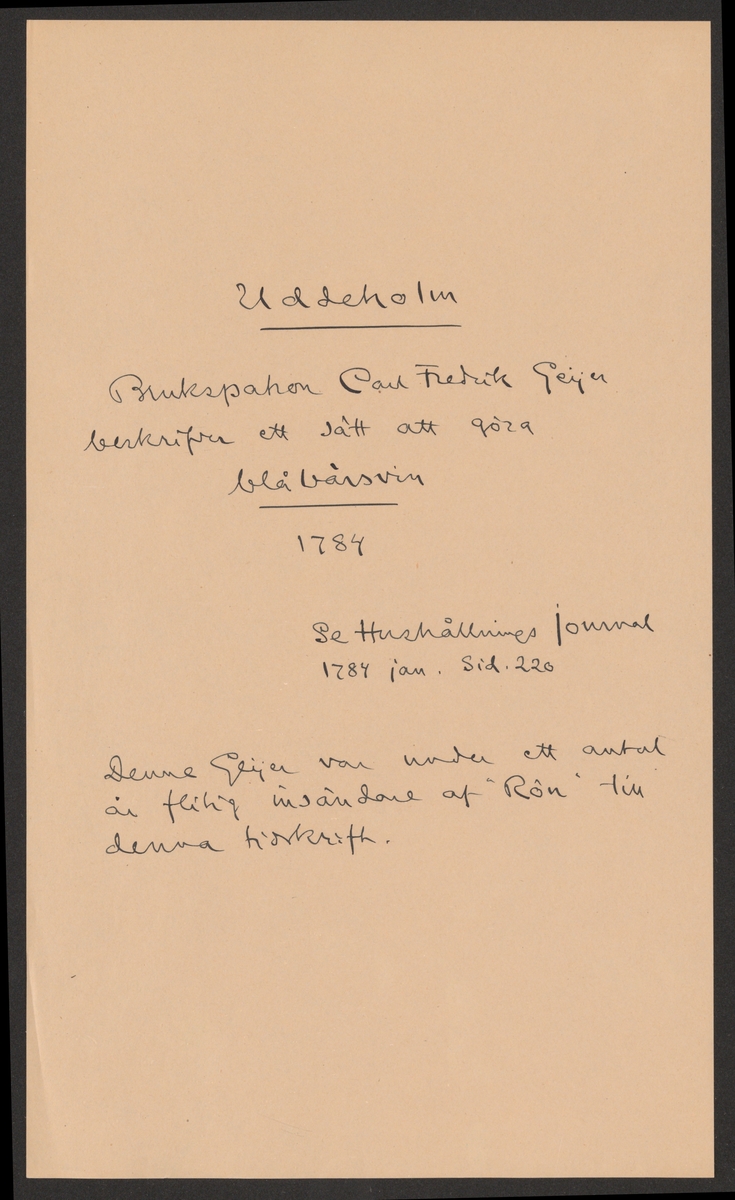 Uddeholm
Brukspatron Carl Fredrik Geijer
beskrifver ett sätt att göra
blåbärsvin
1784
Se Hushållnings journal
1784 jan. Sid. 220
Denne Geijer var under ett antal
år flitig insändare af "Rön" till
denna tidskrift.